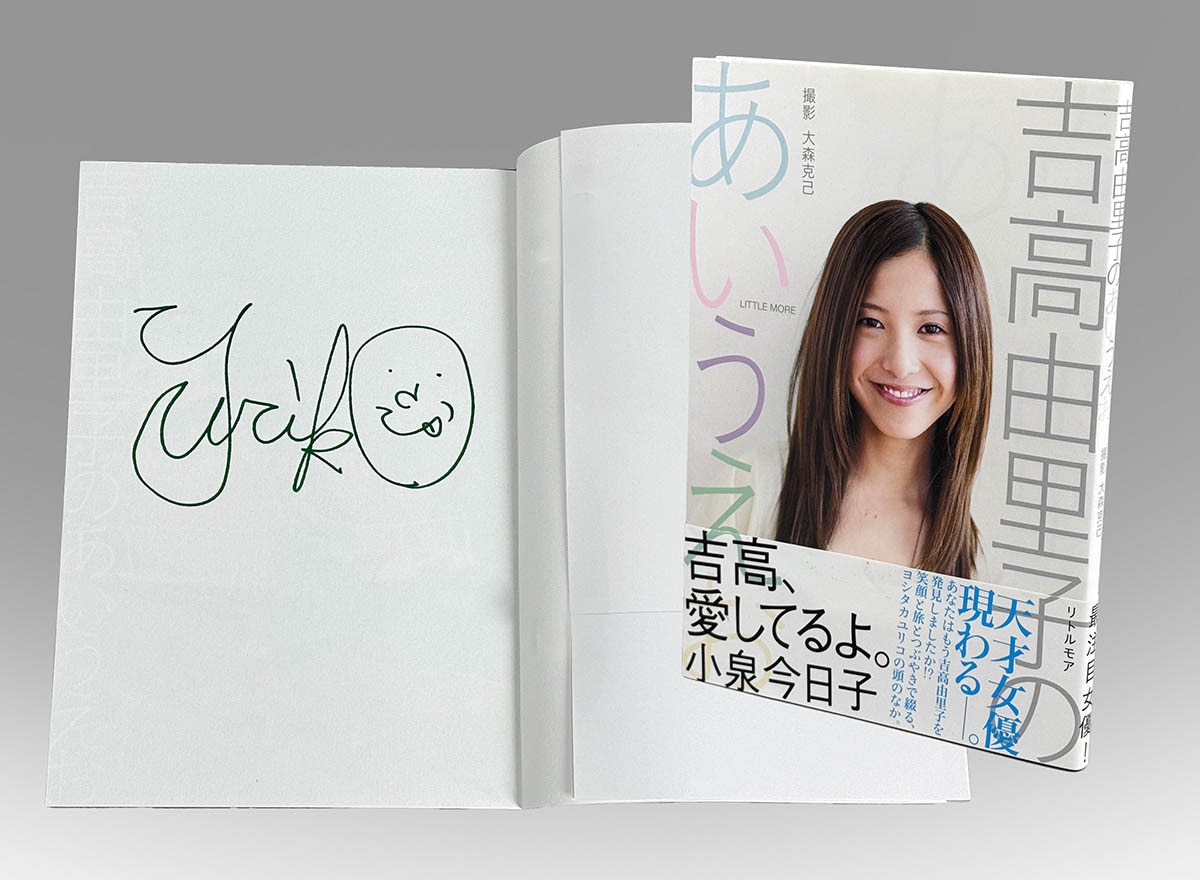 Yuriko
吉高由里子のあいうえお
吉高由里子の
あいうえ
撮影 大森克己
LITTLE MORE
リトルモア
天才女優
現わる——。
あなたはもう吉高由里子を
発見しましたか!?
笑顔と旅とつぶやきで綴る、
ヨシタカユリコの頭のなか。
吉高、
愛してるよ。
小泉今日子
吉高由里子のあいうえお
撮影 大森克己
最注目女優!